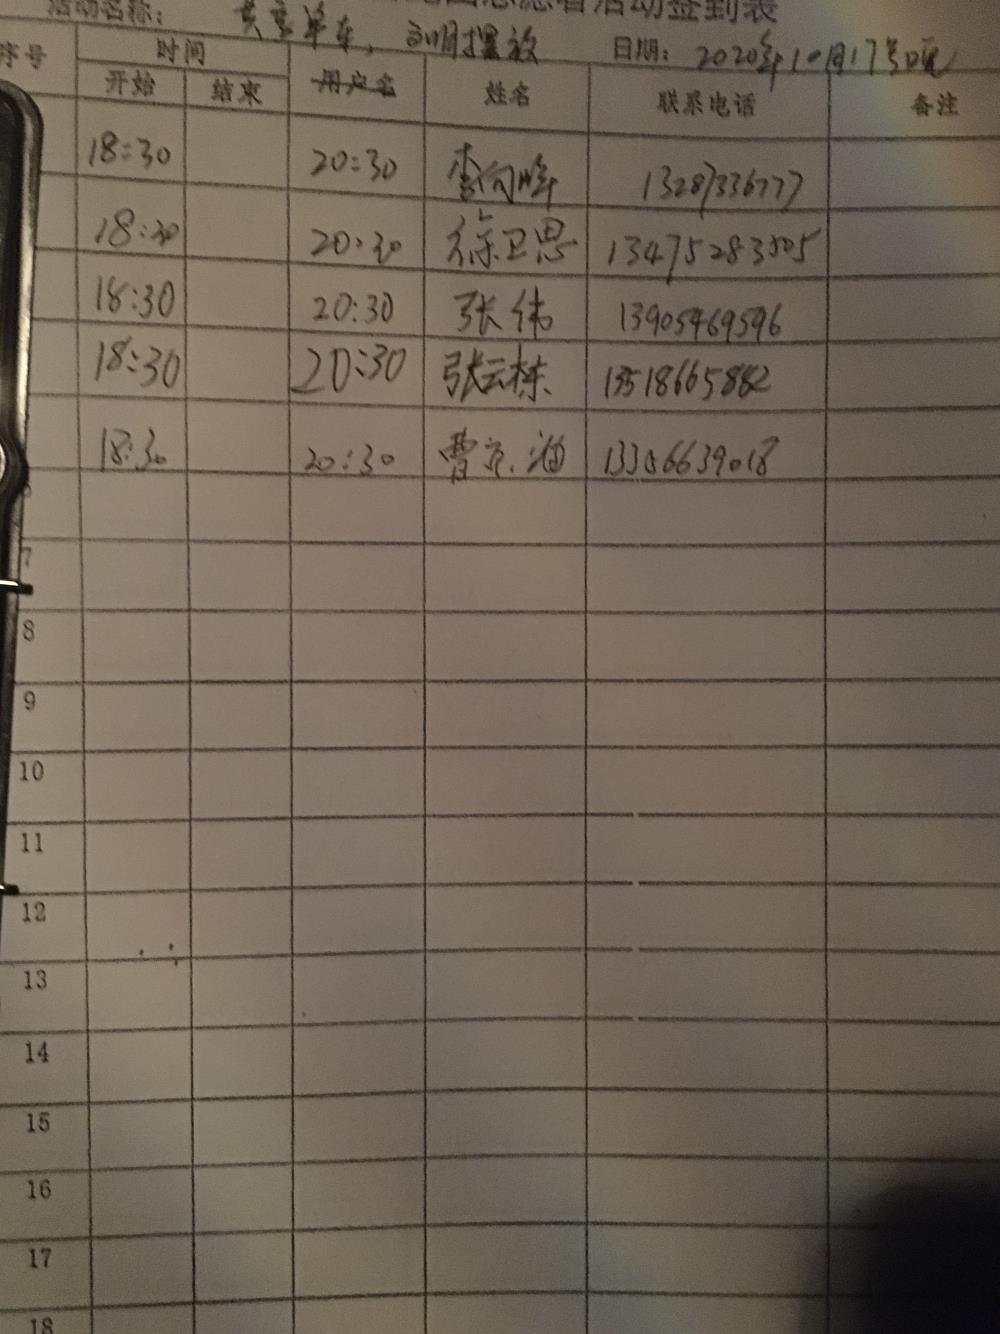 志愿者活动签到表
活动名称： 单车，摆放 日期： 2020年10月17号晚
序号 时间 用户名 姓名 联系电话 备注
开始 结束
18:30 20:30 李向峰 13287336777
18:30 20:30 徐卫恩 13475283505
18:30 20:30 张伟 13905469596
18:30 20:30 张云栋
18:30 20:30 曹京海
7
8
9
10
11
12
13
14
15
16
17
18